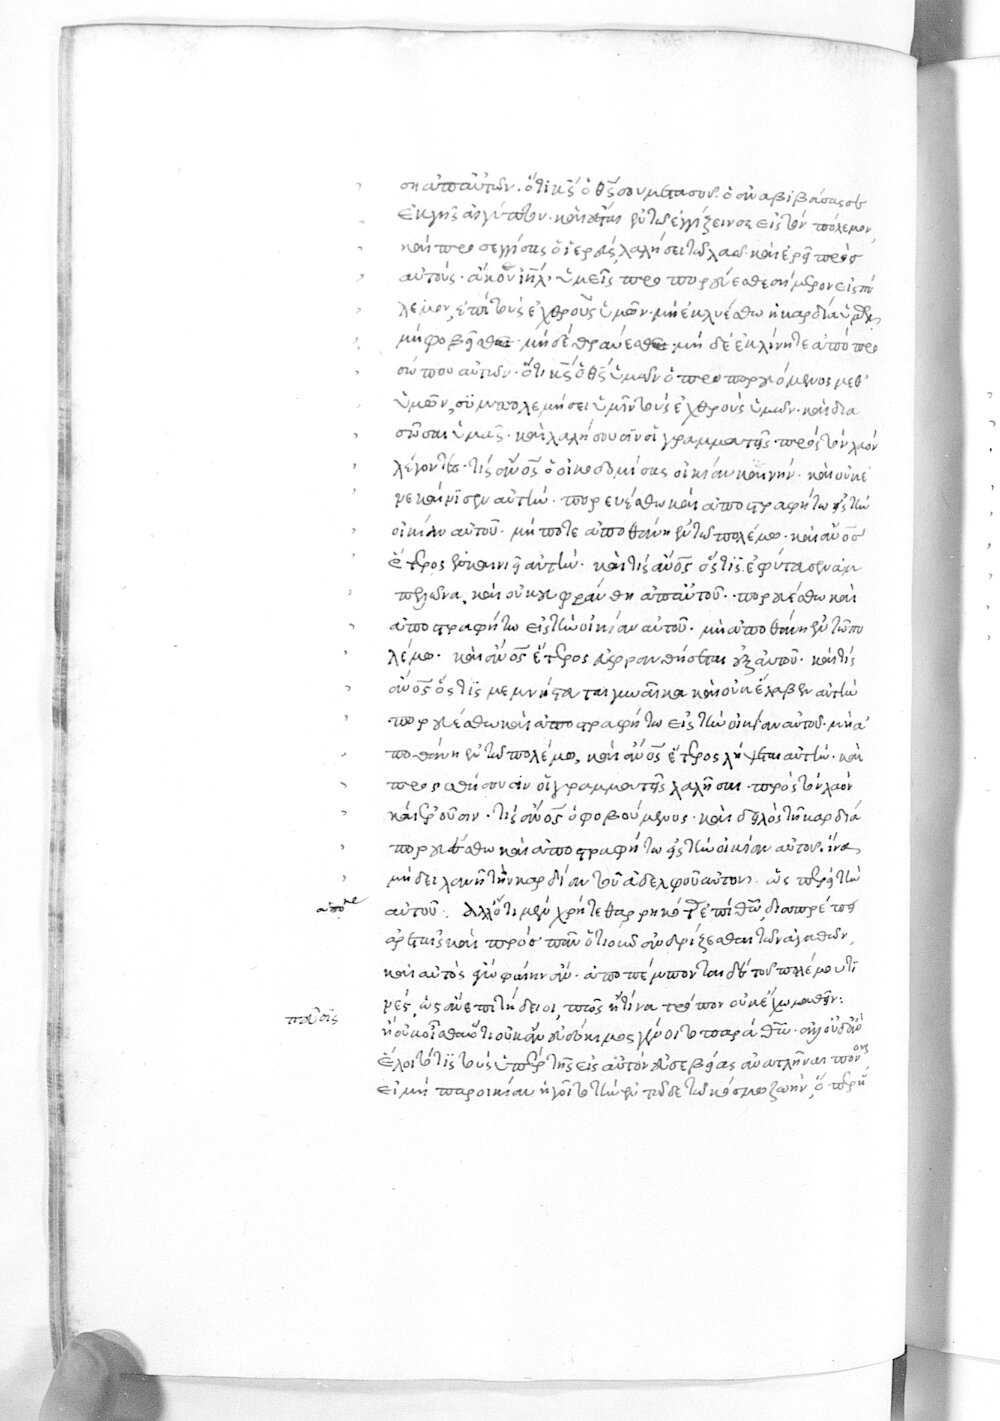 ση ἀπ' αὐτῶν. ὅτι κ̅ς̅ ὁ θ̅ς̅ σου μετά σου. ὁ ἀναβιβάσας σε
ἐκ γῆς αἰγύπτου. καὶ ἔσται ἐν τῶ ἐγγίζειν σε εἰς τὸν πόλεμον,
καὶ προσεγγίσας ὁ ἱερεὺς, λαλήσει τῶ λαῶ. καὶ ἐρεῖ πρὸς
αὐτούς. ἄκουε ι̅η̅λ̅. ὑμεῖς προπορεύεσθε σήμερον εἰς πό
λεμον, ἐπὶ τοὺς ἐχθροὺς ὑμῶν. μὴ ἐκλυέσθω ἡ καρδία ὑμῶν,
μὴ φοβεῖσθε. μὴ δὲ θραύεσθε. μὴ δὲ ἐκλίνητε ἀπὸ προ
σώπου αὐτῶν. ὅτι κ̅ς̅ ὁ θ̅ς̅ ὑμῶν ὁ προπορευόμενος μεθ'
ὑμῶν, συμπολεμήσει ὑμῖν τοὺς ἐχθροὺς ὑμῶν. καὶ δια
σῶσαι ὑμᾶς. καὶ λαλήσουσιν οἱ γραμματεῖς πρὸς τὸν λαὸν
λέγοντες. τίς ἄν̅ο̅ς̅ ὁ οἰκοδομήσας οἰκίαν καινήν. καὶ οὐκ ἐ
νεκαίνισεν αὐτήν. πορευέσθω καὶ ἀποστραφήτω εἰς τὴν
οἰκίαν αὐτοῦ. μήποτε ἀποθάνη ἐν τῶ πολέμω. καὶ ἄν̅ο̅ς̅
ἕτερος ἐγκαινιεῖ αὐτήν. καὶ τίς ἄν̅ο̅ς̅ ὅστις ἐφύτευσεν ἀμ
πελῶνα, καὶ οὐκ εὐφράνθη ἀπ' αὐτοῦ. πορευέσθω καὶ
ἀποστραφήτω εἰς τὴν οἰκίαν αὐτοῦ. μὴ ἀποθάνη ἐν τῶ πο
λέμω. καὶ ἄν̅ο̅ς̅ ἕτερος εὐφρανθήσεται ἐξ αὐτοῦ. καὶ τίς
ἄν̅ο̅ς̅ ὅστις μεμνήστευται γυναῖκα καὶ οὐκ ἔλαβεν αὐτὴν
πορευέσθω καὶ ἀποστραφήτω εἰς τὴν οἰκίαν αὐτοῦ. μὴ ἀ
ποθάνη ἐν τῶ πολέμω, καὶ ἄν̅ο̅ς̅ ἕτερος λήψεται αὐτήν. καὶ
προσθήσουσιν οἱ γραμματεῖς λαλῆσαι πρὸς τὸν λαὸν
καὶ ἐροῦσιν. τίς ἄν̅ο̅ς̅ ὁ φοβούμενος. καὶ δειλὸς τῆ καρδία
πορευέσθω καὶ ἀποστραφήτω εἰς τὴν οἰκίαν αὐτοῦ. ἵνα
μὴ δειλιανῆ τὴν καρδίαν τοῦ ἀδελφοῦ αὐτοῦ. ὡς περὶ τὴν
αὐτοῦ. ἀλλ' ὅτι μὲν χρὴ τεθαρρηκότας ἐπὶ θ̅ῶ̅, διαπρέπειν
ἀρεταῖς καὶ πρὸς πᾶν ὁτιοῦν ἀνδρίζεσθαι τῶν ἀγαθῶν,
καὶ αὐτὸς ἂν φαίην ἄν. ἀποπέμπονται δὲ τοῦ πολέμου τί
νες, ὡς ἀνεπιτήδειοι, πῶς ἢ τίνα τρόπον οὐκ ἔχω μαθεῖν:
ἢ οὐκ οἶσθα ὅτι οὐκ ἂν εὐδόκιμος γένοιτο παρὰ θ̅ῶ̅.
ἕλοιτό τις τοὺς ὑπὲρ τῆς εἰς αὐτὸν εὐσεβείας ἀνατλῆναι πόνους
εἰ μὴ παροικίαν ἡγοῖτο τὴν ἐν τῶδε τῶ κόσμω ζωὴν,